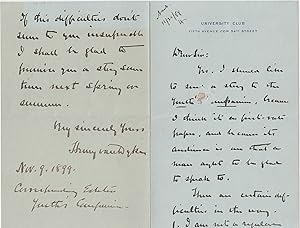 UNIVERSITY CLUB
FIFTH AVENUE COR 54TH STREET
Dear Sir:
Yes, I should like
to write a story to the
Youth's Companion, because
I think it a first-rate
paper, and because its
audience is one that a
man ought to be glad
to speak to.
There are certain dif-
ficulties in the way.
I. I am not a regular
If this difficulties don't
seem to you insuperable
I shall be glad to
promise you a story some
time next spring or
summer.
Very sincerely Yours
Henry van Dyke
Nov. 9. 1899.
Corresponding Editor
Youth's Companion